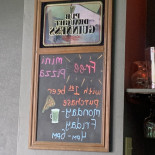 PUB
DRAUGHT
GUINNESS
Free
mini
pizza
with 1st beer
purchase
monday-
Friday
4pm-6pm